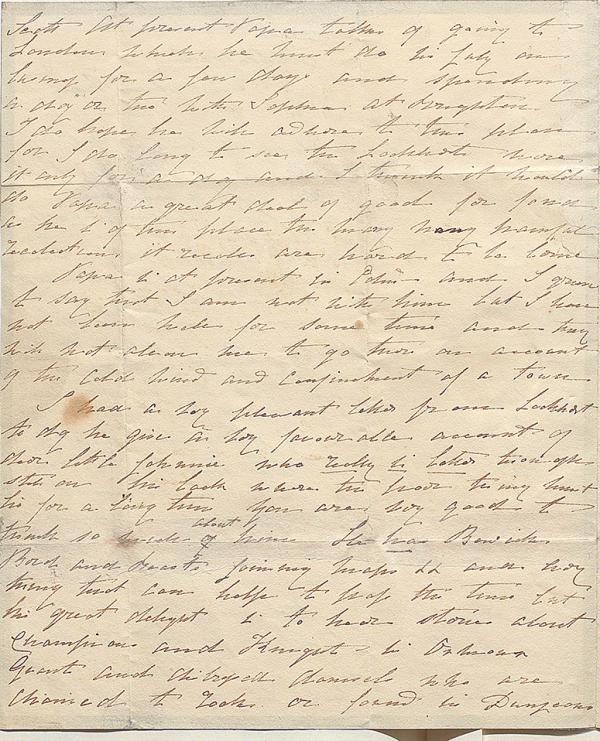 Scott At present Papa talks of going to
London which he must do in July on
for a few days and spending
a day or two with Sophia at Brighton
I do hope he will adhere to this plan
for I do long to see the Lockharts were
it only for a day and I think it would
do Papa a great deal of good for fond
as he is of this place the many many painful
recollections it recalls are hard to be borne
Papa is at present in Edinr and I grieve
to say that I am not with him but I have
not been well for some time and they
will not allow me to go there on account
of the cold wind and confinement of a town
I had a very pleasant letter from Lockhart
to day he gives a very favourable account of
dear little Johnnie who really is better though
still on his back where the poor thing must
lie for a long time You are very good to
think so much about him He has Bewicks
Birds and Beasts joining maps && and every
thing that can help to pass the time but
his great delight is to hear stories about
Champions and Knights in Armour
Giants and distressed damsels who are
chained to rocks or found in Dungeons